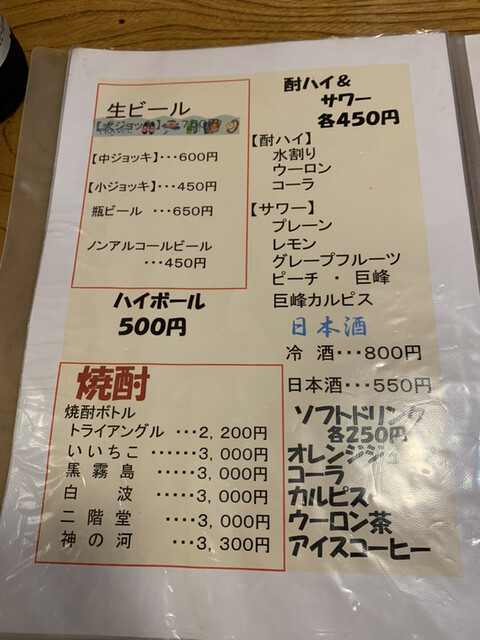 生ビール
【中ジョッキ】・・・600円
【小ジョッキ】・・・450円
瓶ビール ・・・650円
ノンアルコールビール
・・・450円
ハイボール
500円
焼酎
焼酎ボトル
トライアングル ・・・2,200円
いいちこ ・・・・・・3,000円
黒霧島 ・・・・・3,000円
白波 ・・・・・3,000円
二階堂 ・・・・3,000円
神の河 ・・・・3,300円
酎ハイ&
サワー
各450円
【酎ハイ】
水割り
ウーロン
コーラ
【サワー】
プレーン
レモン
グレープフルーツ
ピーチ ・ 巨峰
巨峰カルピス
日本酒
冷 酒・・・800円
日本酒・・・550円
ソフトドリンク
各250円
オレンジジュ
コーラ
カルピス
ウーロン茶
アイスコーヒー